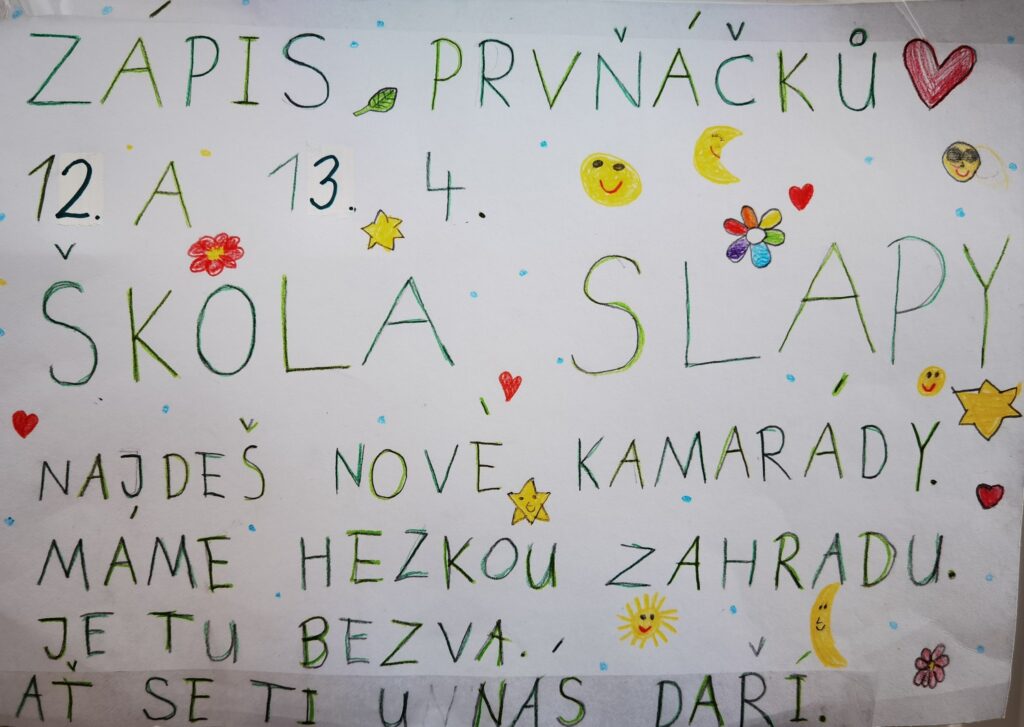 ZÁPIS PRVŇÁČKŮ
12. A 13. 4.
ŠKOLA SLAPY
NAJDEŠ NOVÉ KAMARÁDY.
MÁME HEZKOU ZAHRADU.
JE TU BEZVA.
AŤ SE TI U NÁS DAŘÍ.